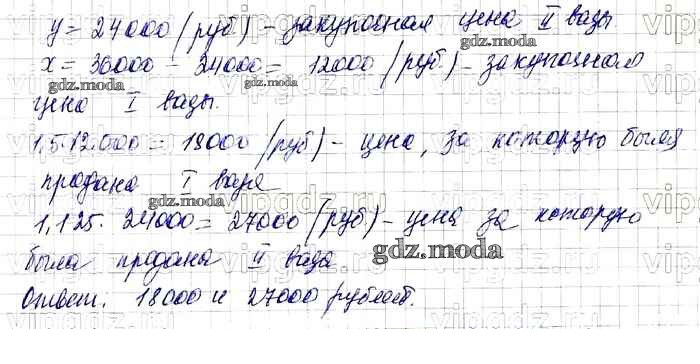 y = 24000 (руб) – закупочная цена II вазы
x = 36000 – 24000 = 12000 (руб) – закупочная
цена I вазы.
1,5·12000 = 18000 (руб) – цена, за которую была
продана I ваза
1,125·24000 = 27000 (руб) – цена за которую
была продана II ваза
Ответ. 18000 и 27000 рублей.
gdz.moda
gdz.moda
gdz.moda
gdz.moda
gdz.moda
vipgdz.ru